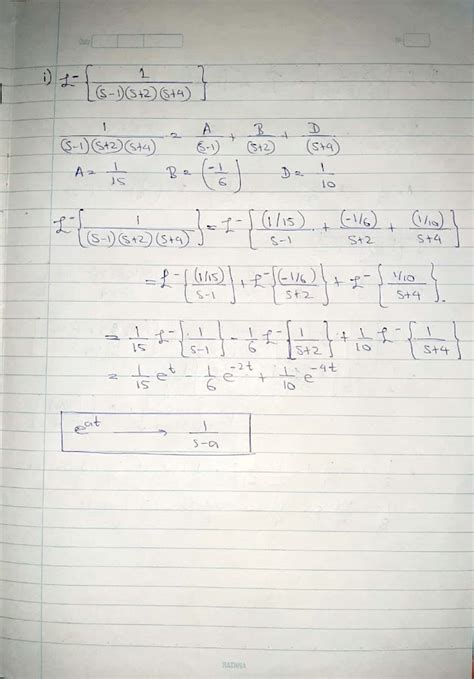 i) L⁻{ 1 / (s-1)(s+2)(s+4) }
1 / (s-1)(s+2)(s+4) = A / (s-1) + B / (s+2) + D / (s+4)
A = 1/15 B = (-1/6) D = 1/10
L⁻{ 1 / (s-1)(s+2)(s+4) } = L⁻{ (1/15) / s-1 + (-1/6) / s+2 + (1/10) / s+4 }
= L⁻{ (1/15) / s-1 } + L⁻{ (-1/6) / s+2 } + L⁻{ 1/10 / s+4 }.
= 1/15 L⁻{ 1 / s-1 } - 1/6 L⁻{ 1 / s+2 } + 1/10 L⁻{ 1 / s+4 }
= 1/15 e^t - 1/6 e^-2t + 1/10 e^-4t
e^at → 1 / s-a